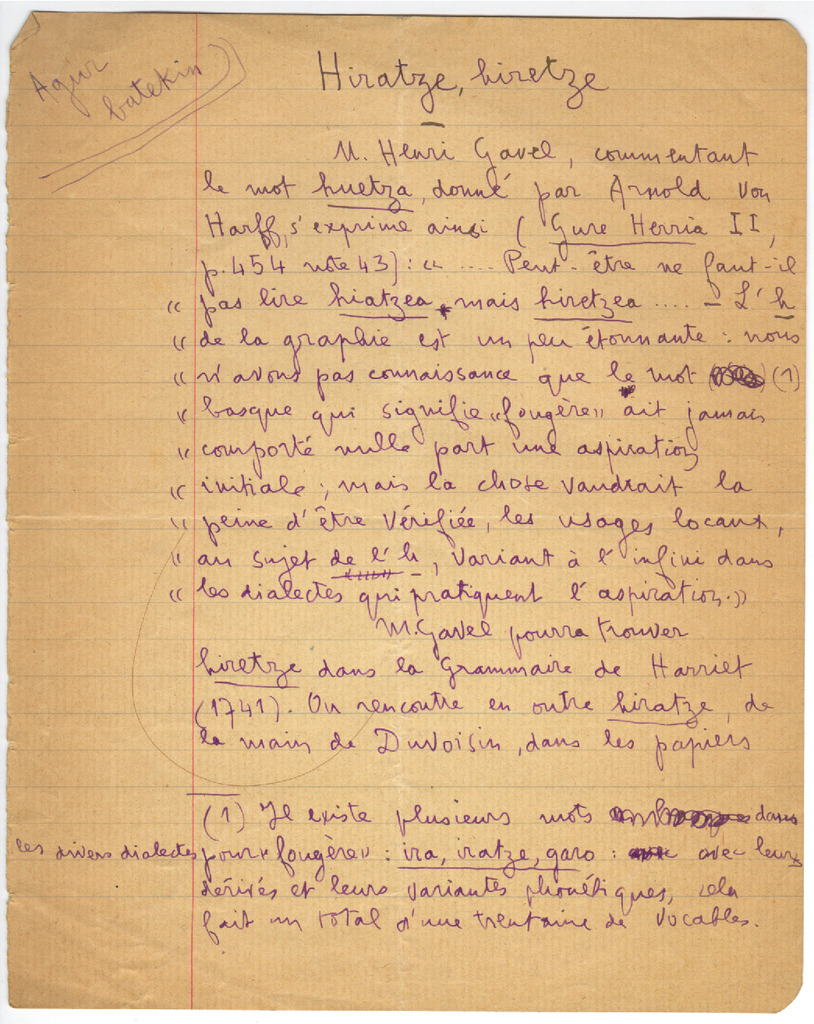 Agur
batekin
Hiratze, hiretze
M. Henri Gavel, commentant
le mot huetza, donné par Arnold von
Harff, s'exprime ainsi (Gure Herria II,
p. 454 note 43) : « .... Peut-être ne faut-il
« pas lire hiatzea, mais hiretzea .... – L'h
« de la graphie est un peu étonnante : nous
« n'avons pas connaissance que le mot (1)
« basque qui signifie « fougère » ait jamais
« comporté nulle part une aspiration
« initiale ; mais la chose vaudrait la
« peine d'être vérifiée, les usages locaux,
« au sujet de l'h, variant à l'infini dans
« les dialectes qui pratiquent l'aspiration. »
M. Gavel pourra trouver
hiretze dans la Grammaire de Harriet
(1741). On rencontre en outre hiratze, de
la main de Duvoisin, dans les papiers
(1) Il existe plusieurs mots dans
les divers dialectes pour « fougère » : ira, iratze, garo : avec leurs
dérivés et leurs variantes phonétiques, cela
fait un total d'une trentaine de vocables.